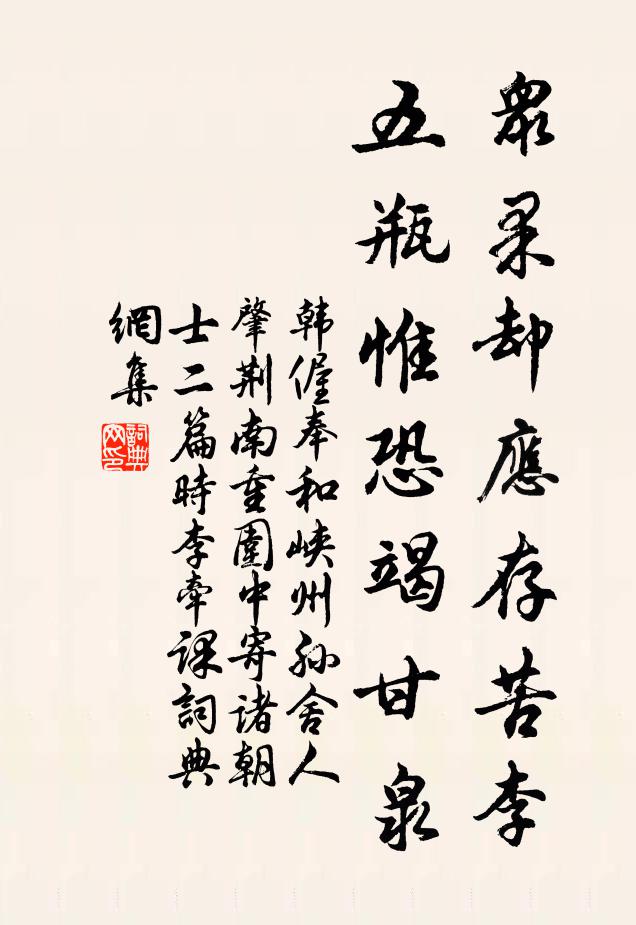 眾果却應存苦李
五瓶惟恐竭甘泉
韩偓奉和峡州孙舍人
肇荆南重圍中寄诸朝
士二篇時李牵課詞典
網集
詞典
网印